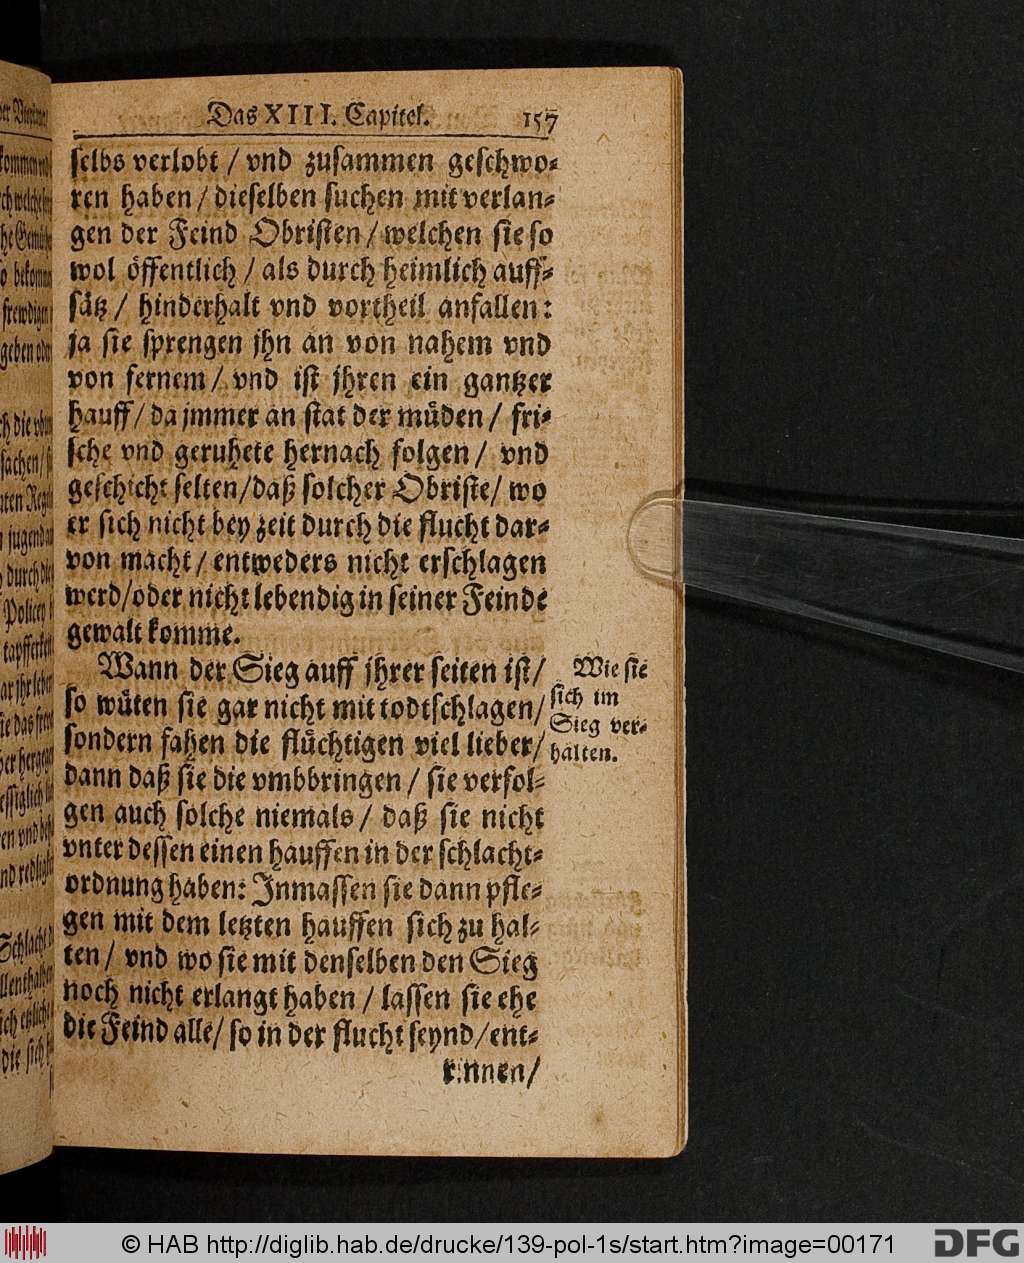 Das XIII. Capitel. 157
selbs verlobt / vnd zusammen geschwo-
ren haben / dieselben suchen mit verlan-
gen der Feind Obristen / welchen sie so
wol öffentlich / als durch heimlich auff-
sätz / hinderhalt vnd vortheil anfallen:
ja sie sprengen jhn an von nahem vnd
von fernem / vnd ist jhren ein gantzer
hauff / da jmmer an stat der müden / fri-
sche vnd geruhete hernach folgen / vnd
geschicht selten / daß solcher Obriste / wo
er sich nicht bey zeit durch die flucht dar-
von macht / entweders nicht erschlagen
werd / oder nicht lebendig in seiner Feinde
gewalt komme.
Wann der Sieg auff jhrer seiten ist /
so wüten sie gar nicht mit todtschlagen /
sondern fahen die flüchtigen viel lieber /
dann daß sie die vmbbringen / sie verfol-
gen auch solche niemals / daß sie nicht
vnter dessen einen hauffen in der schlacht-
ordnung haben: Inmassen sie dann pfle-
gen mit dem letzten hauffen sich zu hal-
ten / vnd wo sie mit denselben den Sieg
noch nicht erlangt haben / lassen sie ehe
die Feind alle / so in der flucht seynd / ent-
rinnen /
Wie sie
sich im
Sieg ver-
halten.
© HAB http://diglib.hab.de/drucke/139-pol-1s/start.htm?image=00171
DFG